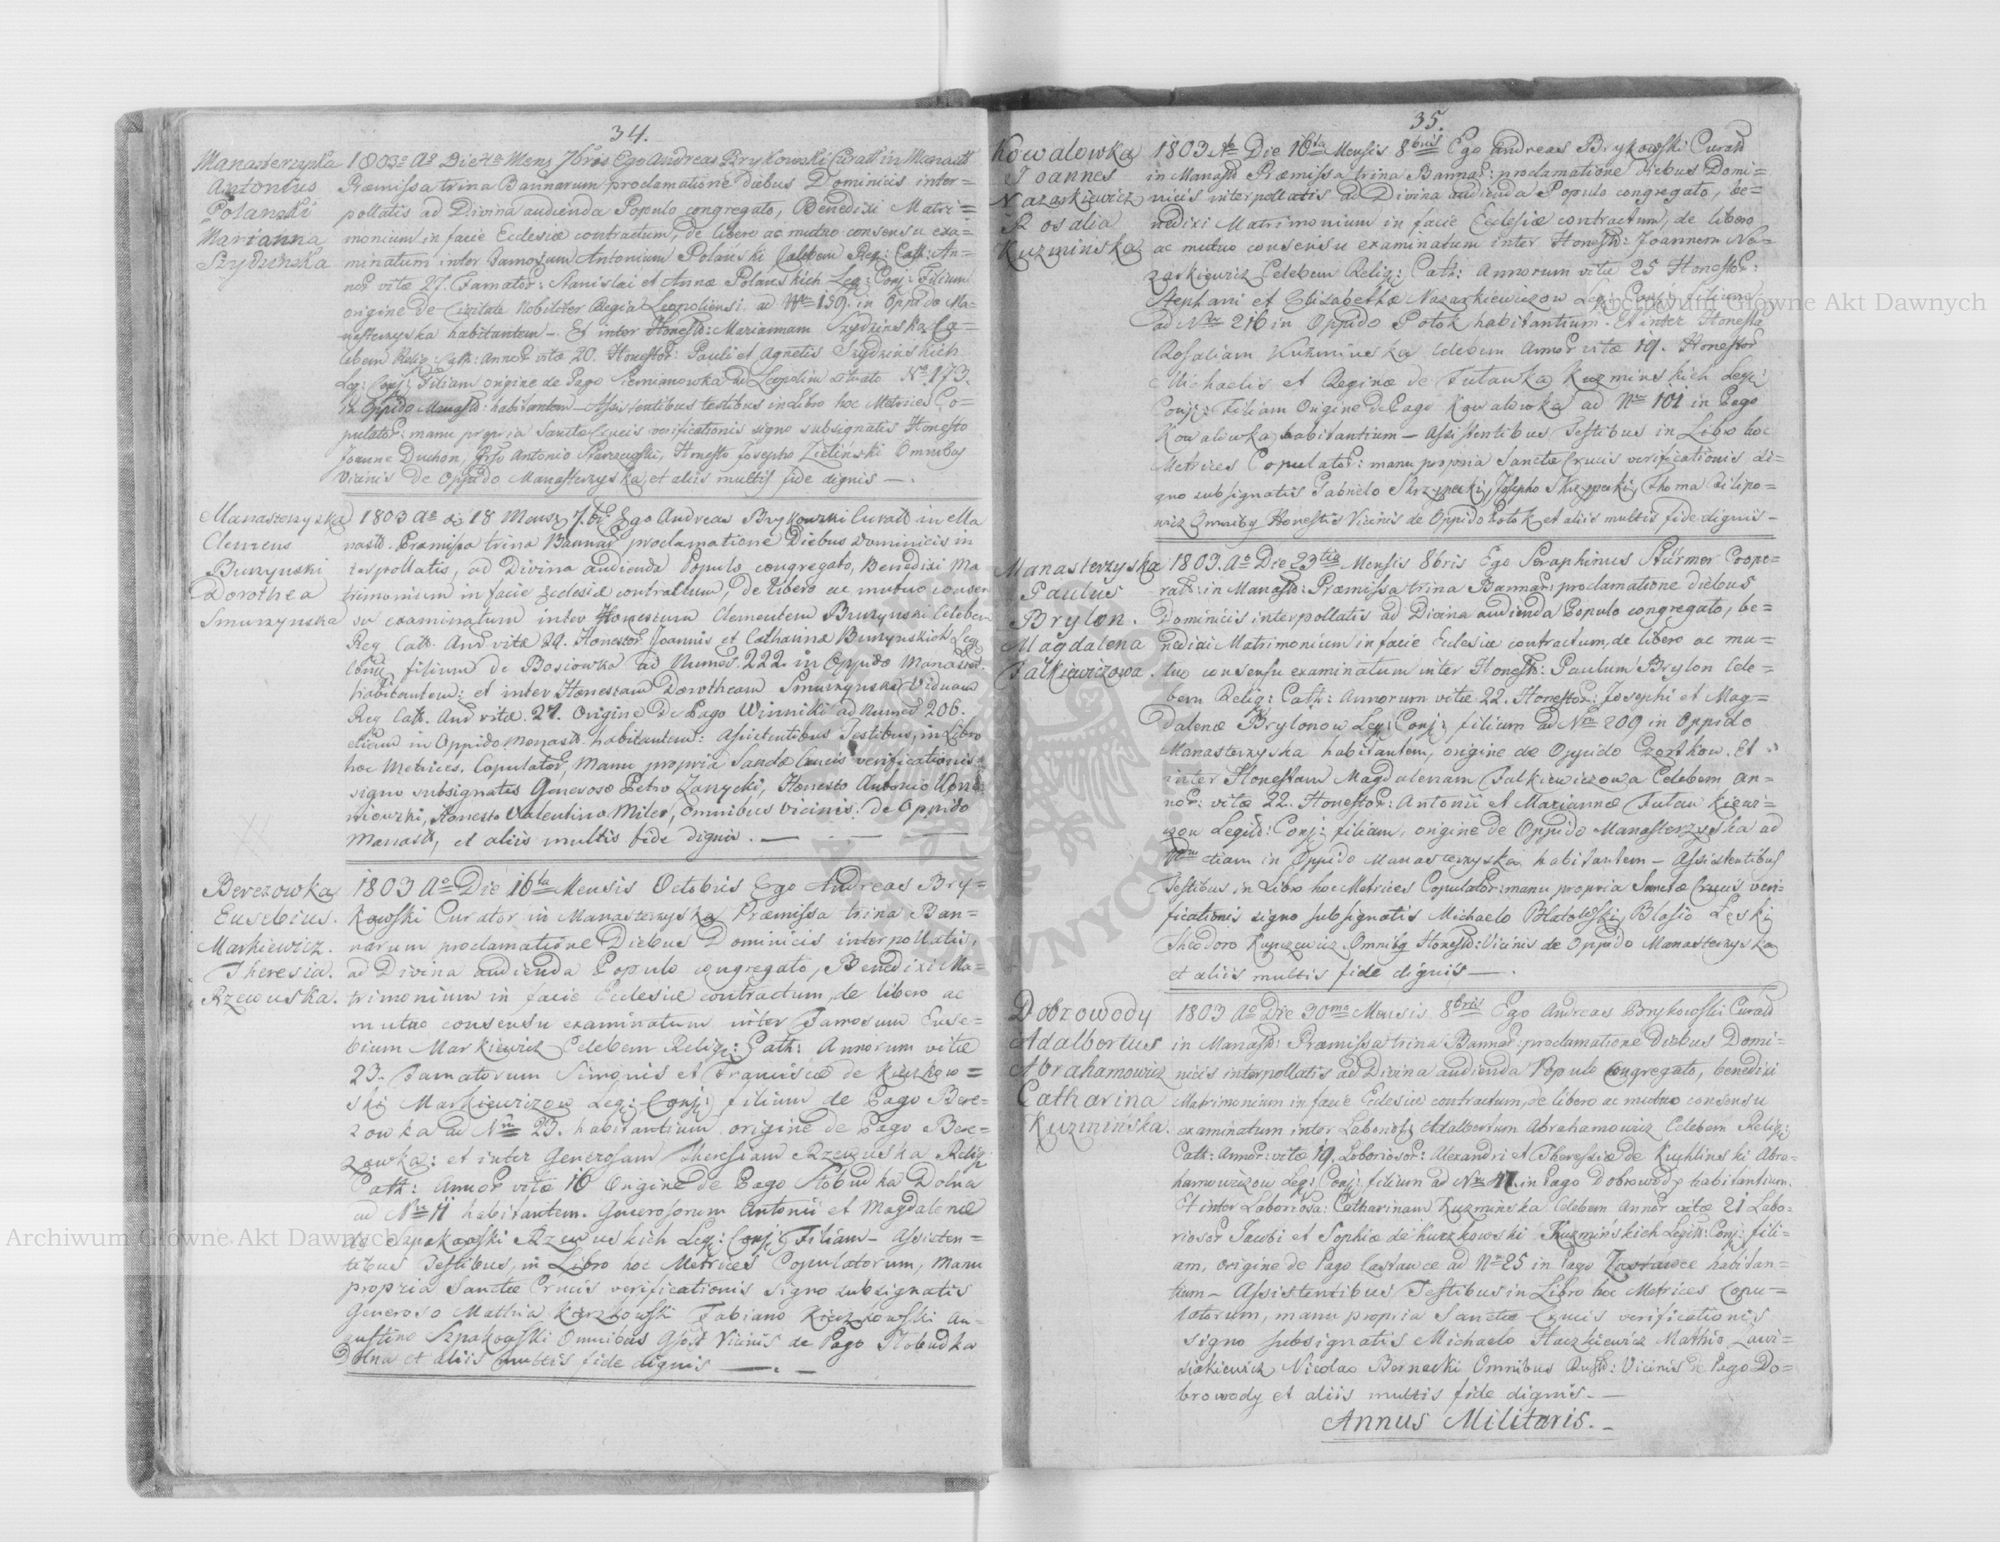 34.
Manasterzyska
Antonius
Polanski
Marianna
Szydzinska
1803o Ao Die Mens 7bris Ego Andreas Brykowski Curatt in Manast
Præmissa trina Bannarum proclamatione diebus Dominicis inter=
pollatis ad Divina audienda Populo congregato, Benedixi Matri=
monium in facie Ecclesiæ contractum, de libero ac mutuo consensu exa=
minatum inter Famosum Antonium Polański Celebem Reg: Cath: An=
nor vitæ 27. Famator: Stanislai et Annæ Polanskich Leg: Conj: Filium
origine de Civitate Nobiliter Regia Leopoliensi ad Nro 159. in Oppido Ma=
nasterzyska habitantem — Et inter Honestā: Mariannam Szydzinska Ce=
lebem Relig Cath: Annor vitæ 20. Honestor: Pauli et Agnetis Szydzinskich
Leg: Conj: Filiam origine de Pago Siemianowka ad Leopolim situato No 173.
in Oppido Manast: habitantem — Assistentibus testibus in Libro hoc Metrices Co=
pulator: manu propria Sanctæ Crucis verificationis signo subsignatis Honesto
Joanne Duchon, Antonio Honesto Josepho Zieliński Omnibus
Vicinis de Oppido Manasterzyska, et aliis multis fide dignis —.
Manasterzyska
Clemens
Burzynski
Dorothea
Smurzynska
1803 Ao di 18 Mensis 7.bris Ego Andreas Brykowski Curatt in Ma
nastt. Præmissa trina Bannar proclamatione Diebus Dominicis in
terpollatis, ad Divina audienda Populo congregato, Benedixi Ma
trimonium in facie Ecclesiæ contractum, de libero ac mutuo consen
su examinatum inter Honestum Clementem Burzynski Celebem
Reg Cath. Ann vitæ 29. Honestor Joannis et Catharinæ Burzynskich Leg
Conj, filium de Bosiowka ad Numer. 222. in Oppido Manaster.
habitantem; et inter Honestam Dorotheam Smurzynska Viduam
Reg Cath. Ann vitæ. 27. Origine de Pago Winniki ad Numer 206.
etiam in Oppido Monast habitantem: Assistentibus Testibus, in Libro
hoc Metrices, Copulator, Manu propria Sanctæ Crucis verificationis
signo subsignatis Generoso Petro Zarzycki, Honesto Antonio
Honesto Valentino Miler, omnibus Vicinis: de Oppido
Manastt, et aliis multis fide dignis. —
Berezowka
Eusebius.
Markiewicz.
Theresia.
Rzewuska.
1803 Ao Die 16ta Mensis Octobris Ego Andreas Bry=
kowski Curator in Manasterzyska Præmissa trina Ban=
narum proclamatione Diebus Dominicis interpollatis,
ad Divina audienda Populo congregato, Benedixi Ma=
trimonium in facie Ecclesiæ contractum, de libero ac
mutuo consensu examinatum inter Famosum Euse=
bium Markiewicz Celebem Relig: Cath: Annorum vitæ
23. Famatorum Simonis et Franciscæ de Kierzkow=
ski Markiewiczow Leg: Conj: filium de Pago Bere=
zowka ad Nm 23. habitantium origine de Pago Bere=
zowka: et inter Generosam Theresiam Rzewuska Relig:
Cath: Annor vitæ 16 Origine de Pago Slobudka Dolna
ad Nm 11 habitantem. Generosorum Antonii et Magdalenæ
de Szpakowski Rzewuskich Leg: Conj: Filiam — Assisten=
tibus Testibus, in Libro hoc Metrices Copulatorum, Manu
propria Sanctæ Crucis verificationis signo subsignatis
Generoso Mathia Kierzkowski Fabiano Kierzkowski Au=
gustino Szpakowski Omnibus Vicinis de Pago Slobudka
Dolna et aliis multis fide dignis —.—
35.
Kowalowka
Joannes
Nazarkiewicz
Rosalia
Kuzminska
1803 Ao Die 16ta Mensis 8bris Ego Andreas Brykowski Curatt
in Manastt Præmissa trina Bannar: proclamatione diebus Domi=
nicis interpollatis ad Divina audienda Populo congregato, be=
nedixi Matrimonium in facie Ecclesiæ contractum, de libero
ac mutuo consensu examinatum inter Honestt: Joannem Na=
zarkiewicz Celebem Relig: Cath: Annorum vitæ 25 Honestor:
Stephani et Elisabethæ Nazarkiewiczow Leg: Conj: filium
ad Nro 216 in Oppido Potok habitantium. Et inter Honesta
Rosaliam Kuzminska Celebem Annor vitæ 19. Honestor
Michaelis et Reginæ de Kuzminskich Leg:
Conj: Filiam Origine de Pago Kowalowka ad Nro 101 in Pago
Kowalowka habitantium — Assistentibus Testibus in Libro hoc
Metrices Copulator: manu propria Sanctæ Crucis verificationis si=
gno subsignatis Gabrielo Skrzypecki, Josepho Skrzypecki, Thoma Filipo=
wicz Omnibus Honestis Vicinis de Oppido Potok et aliis multis fide dignis —
Manasterzyska
Paulus
Brylon.
Magdalena
Falkiewiczowa.
1803. Ao Die 23tia Mensis 8bris Ego Seraphinus Stürmer Coope=
ratt: in Manastt: Præmissa trina Bannar: proclamatione diebus
Dominicis interpollatis ad Divina audienda Populo congregato, be=
nedixi Matrimonium in facie Ecclesiæ contractum, de libero ac mu=
tuo consensu examinatum inter Honestt: Paulum Brylon Cele=
bem Relig: Cath: Annorum vitæ 22. Honestor: Josephi et Mag=
dalenæ Brylonow Leg: Conj: filium ad Nro 209 in Oppido
Manasterzyska habitantem, origine de Oppido Czortkow. Et
inter Honestam Magdalenam Falkiewiczowa Celebem An=
nor: vitæ 22. Honestor: Antonii et Mariannæ
Legitt: Conj: filiam, origine de Oppido Manasterzyska ad
etiam in Oppido Manasterzyska habitantem — Assistentibus
Testibus in Libro hoc Metrices Copulator: manu propria Sanctæ Crucis veri=
ficationis signo subsignatis Michaelo Blasio Lęski
Theodoro Omnibus Honestt: Vicinis de Oppido Manasterzyska
et aliis multis fide dignis —.
Dobrowody
Adalbertus
Abrahamowicz
Catharina
Kuzmińska.
1803 Ao Die 30ma Mensis 8bris Ego Andreas Brykowski Curatt
in Manastt: Præmissa trina Bannar: proclamatione Diebus Domi=
nicis interpollatis ad Divina audienda Populo Congregato, benedixi
Matrimonium in facie Eclesiæ contractum, de libero ac mutuo consensu
examinatum inter Laborios: Adalbertum Abrahamowicz Celebem Relig:
Cath: Annor: vitæ 19. Laboriosor: Alexandri et Theressiæ de Kuhlinski Abra=
hamowiczow Leg: Conj: filium ad Nro 47. in Pago Dobrowody habitantium.
Et inter Laboriosa: Catharinam Kuzminska Celebem Annor vitæ 21 Labo=
riosor Jacobi et Sophiæ de Kurzkowski Kuzmińskich Legitt: Conj: fili=
am, origine de Pago Zastawce ad Nro 25 in Pago Zastawce habitan=
tium — Assistentibus Testibus in Libro hoc Metrices Copu=
latorum, manu propria Sanctæ Crucis verificationis
signo subsignatis Michaelo Mathia
Nicolao Bernacki Omnibus Vicinis de Pago Do=
browody et aliis multis fide dignis. —
Annus Militaris. —
Archiwum Główne Akt Dawnych
Archiwum Główne Akt Dawnych